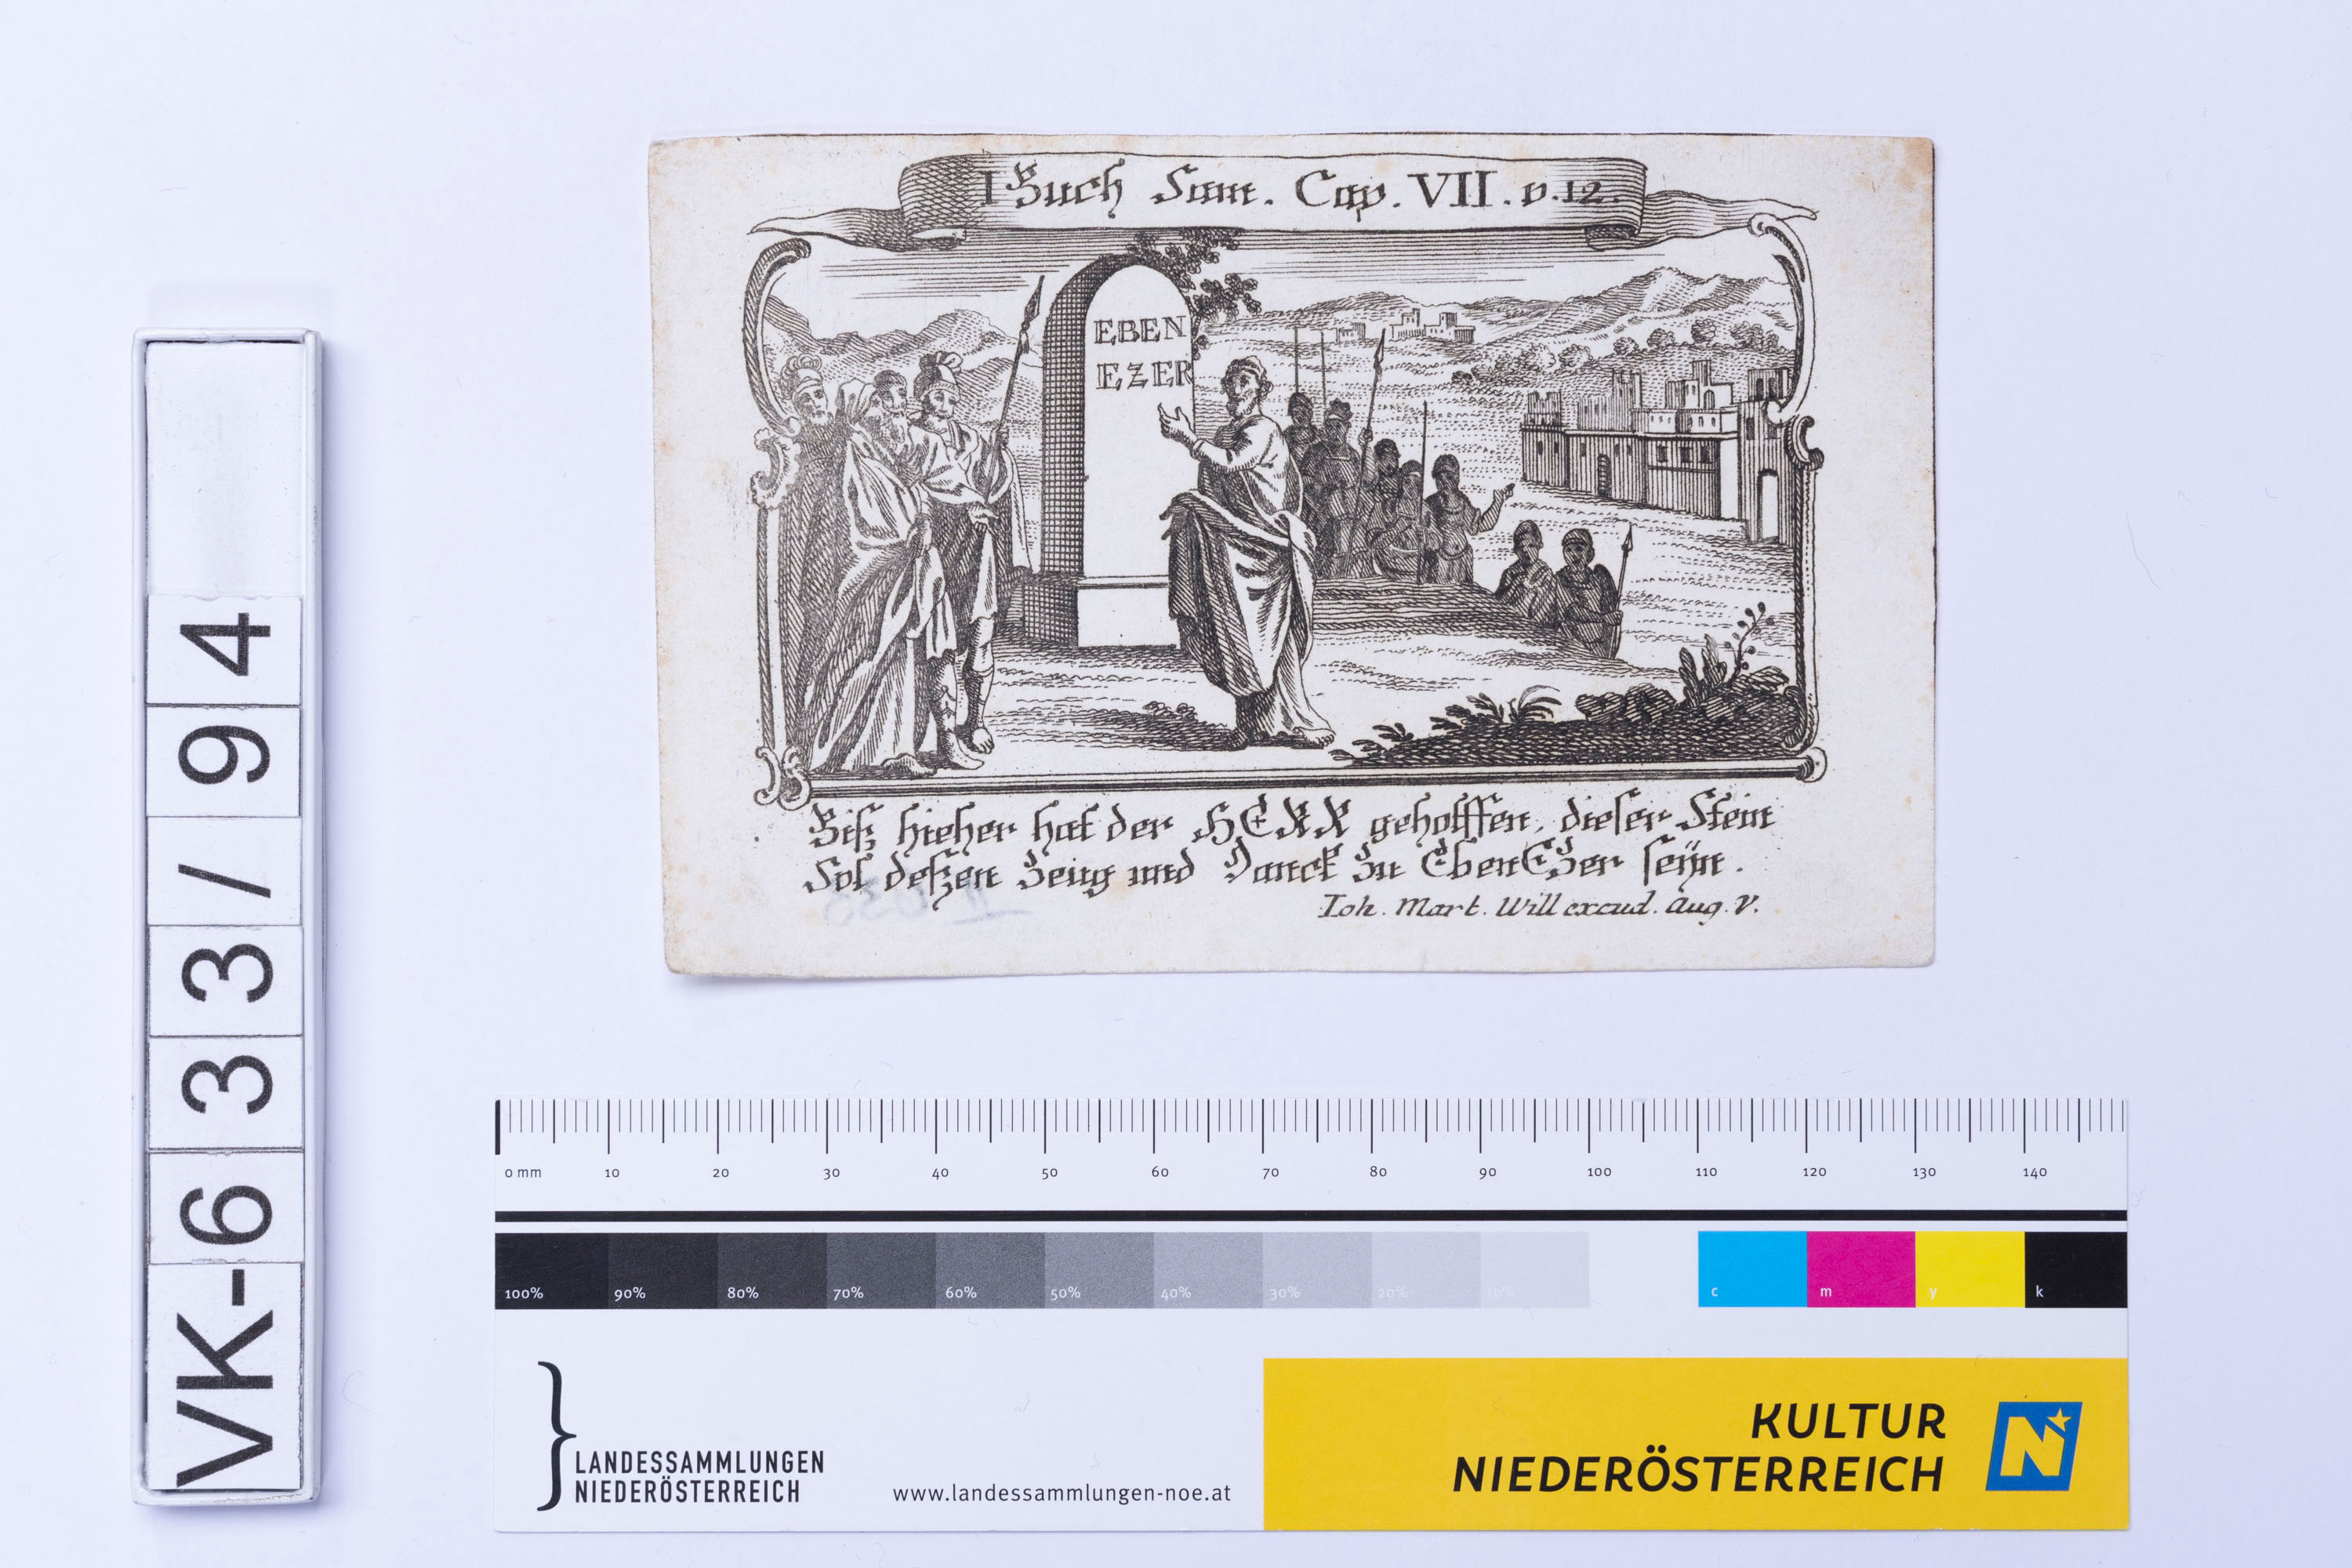 I Buch Sam. Cap. VII. v. 12.
EBEN
EZER
Biß hieher hat der HERR geholffen, dieser Stein
Sol deßen Zeug und Danck Zu EbenEzer seÿn.
Ioh. Mart. Will excud. Aug. V.
VK-633/94
0 mm 10 20 30 40 50 60 70 80 90 100 110 120 130 140
100% 90% 80% 70% 60% 50% 40% 30% 20% 10% c m y k
LANDESSAMMLUNGEN
NIEDERÖSTERREICH
www.landessammlungen-noe.at
KULTUR
NIEDERÖSTERREICH
N